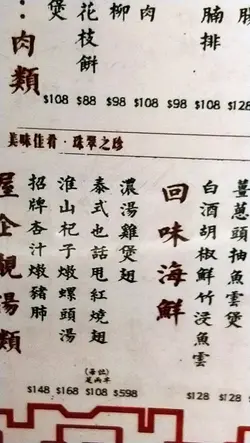 肉類
煲
花枝餅
柳
肉
腩排
$108 $88 $98 $108 $98 $108 $128
美味佳肴·珠翠之珍
薑蔥頭抽魚雲煲
白酒胡椒鮮竹浸魚雲
回味海鮮
濃湯雞煲翅
泰式也話甩紅燒翅
淮山杞子燉螺頭湯
招牌杏汁燉豬肺
企靚湯類
$148 $168 $108 $598 $128 $128